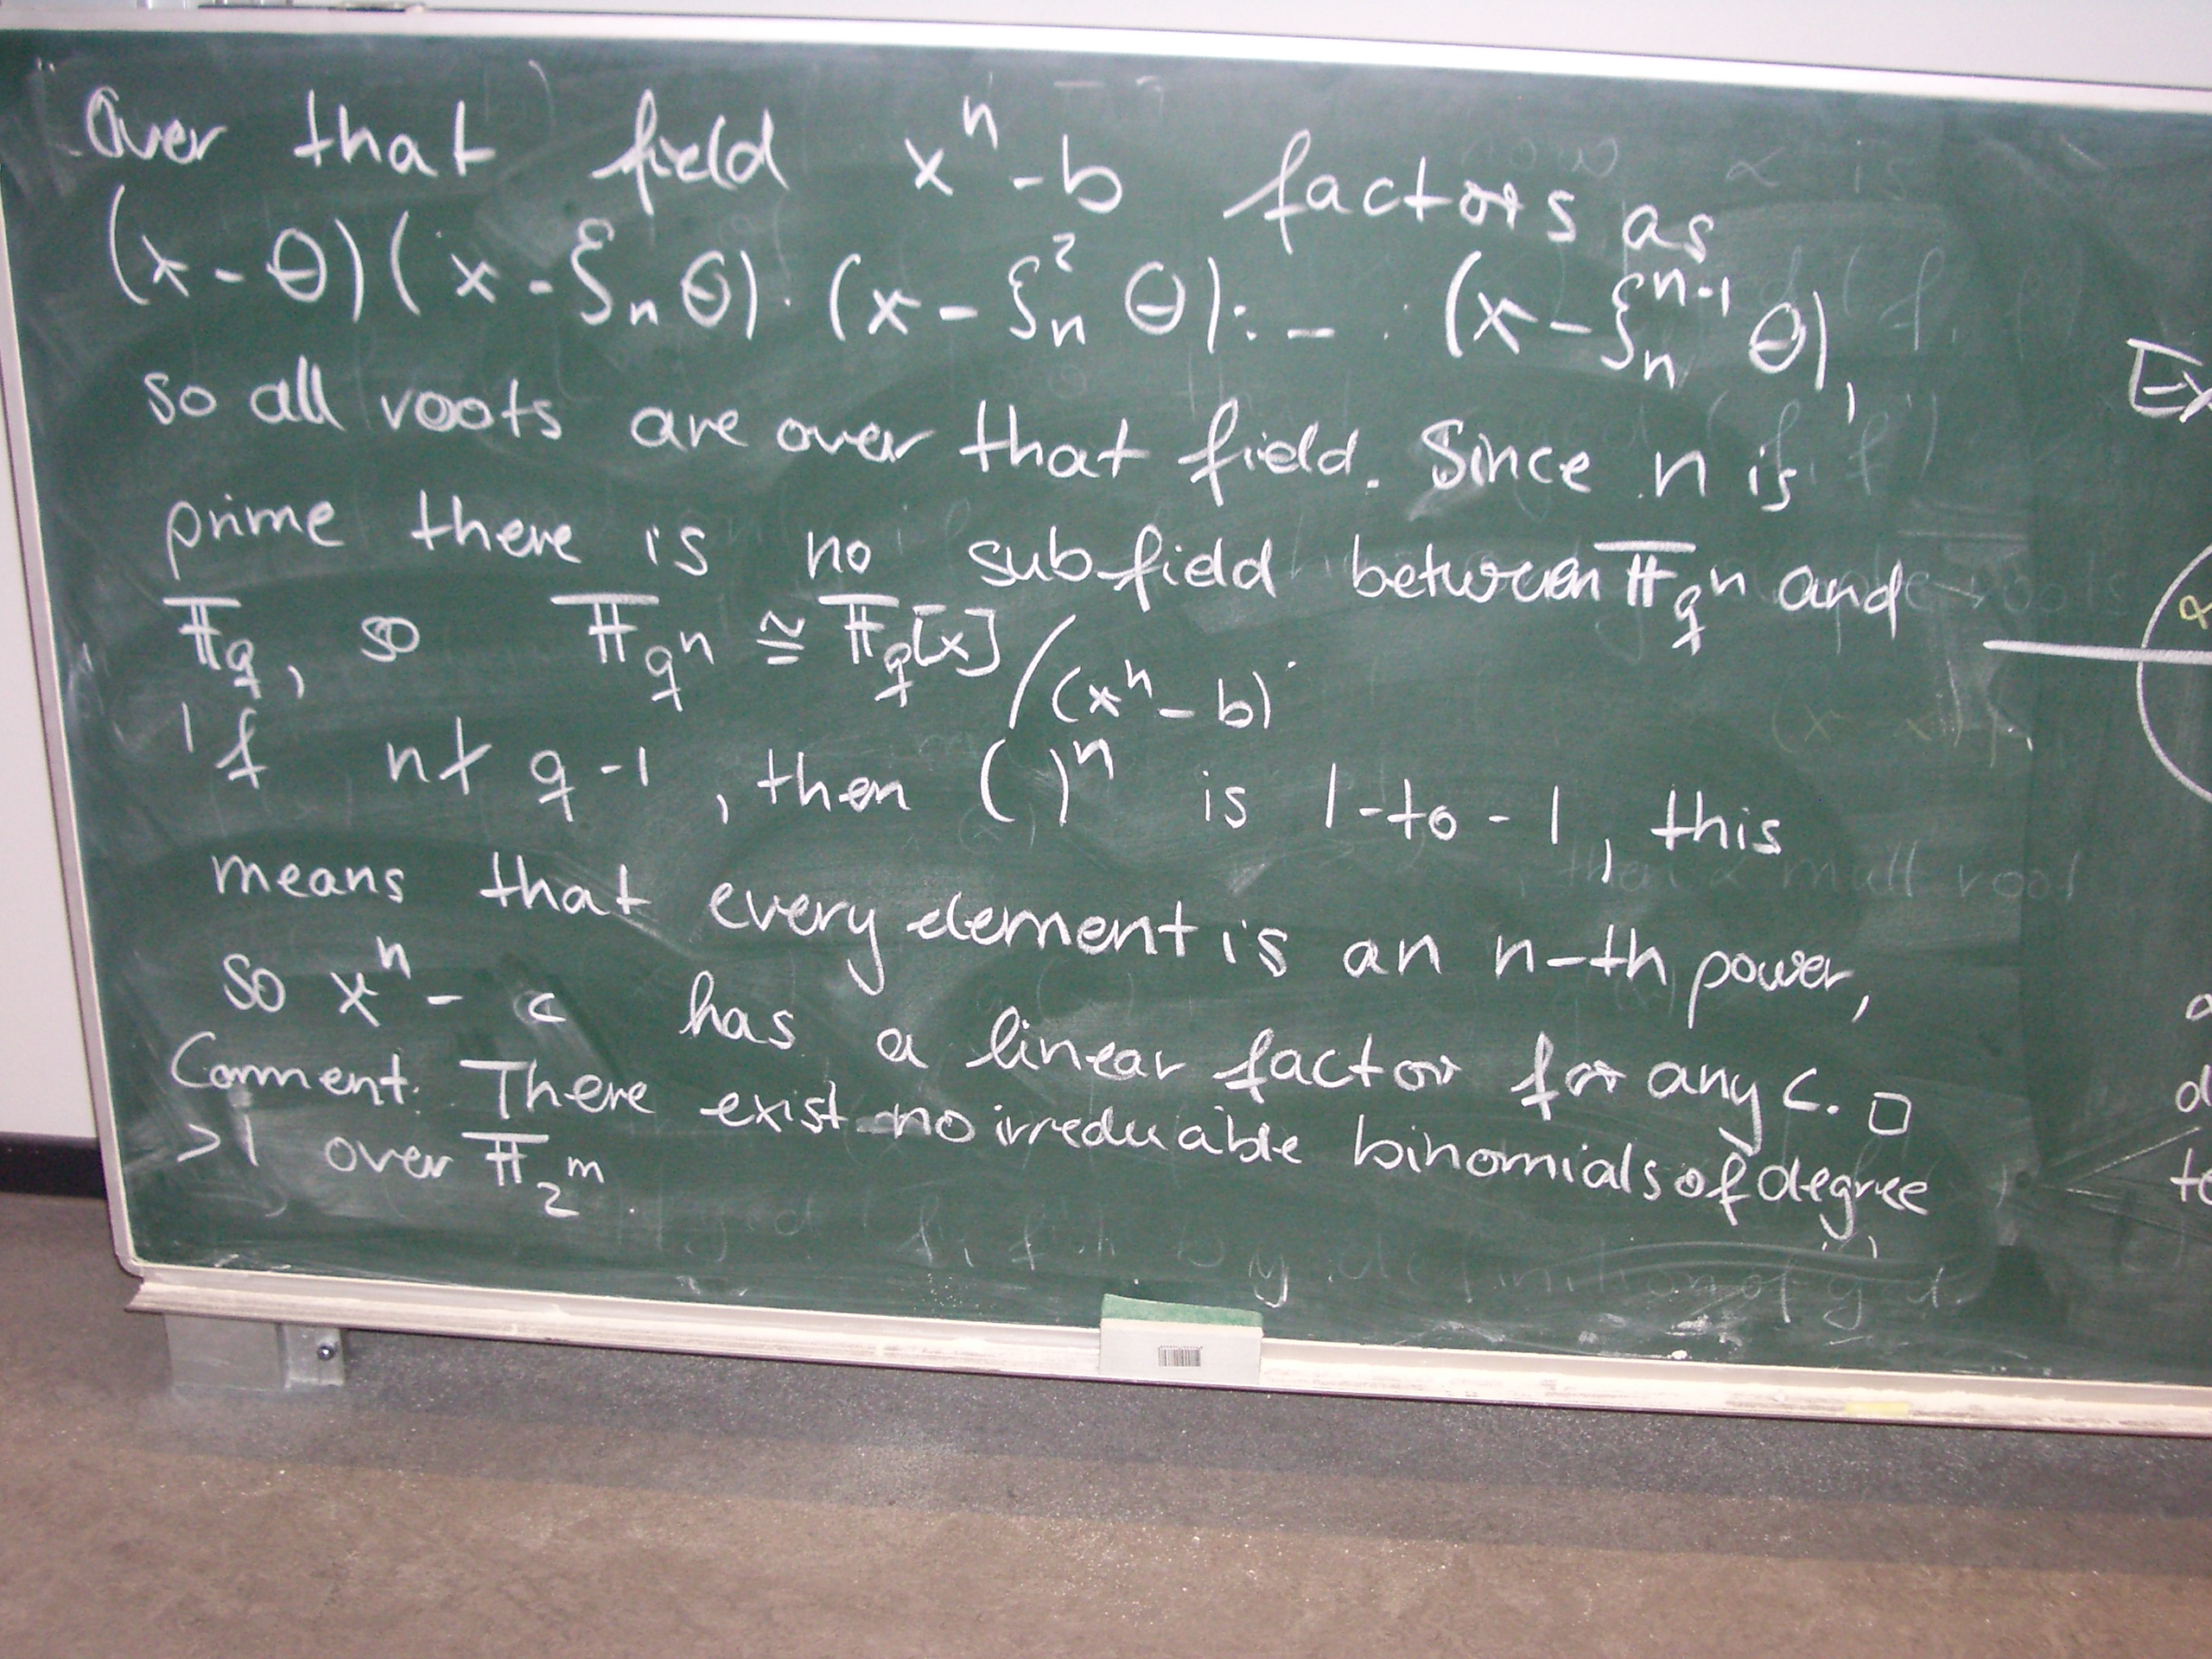 Over that field xⁿ - b factors as
(x - θ)(x - ξₙ θ)·(x - ξₙ² θ)· - · (x - ξₙⁿ⁻¹ θ),
so all roots are over that field. Since n is
prime there is no subfield between 𝔽_qⁿ and
𝔽_q, so 𝔽_qⁿ ≅ 𝔽_q[x]/(xⁿ - b).
If n∤ q-1, then ( )ⁿ is 1-to-1, this
means that every element is an n-th power,
so xⁿ - c has a linear factor for any c. □
Comment: There exist no irreduable binomials of degree
>1 over 𝔽_2ᵐ.
Ex